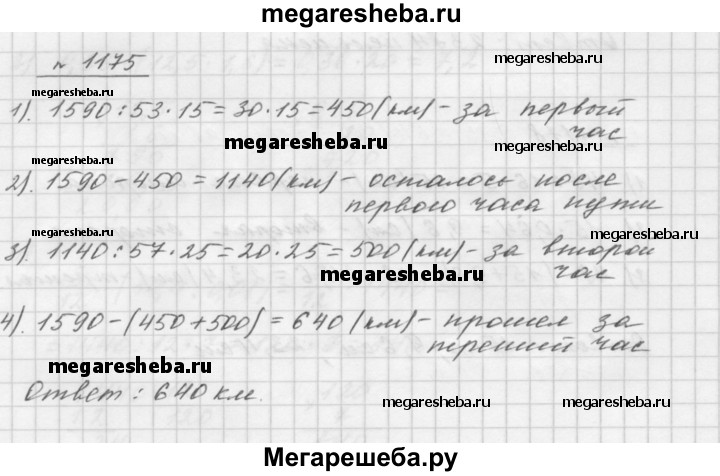 megaresheba.ru
№ 1175
megaresheba.ru
megaresheba.ru
1). 1590 : 53 · 15 = 30 · 15 = 450 (км) – за первый
час
megaresheba.ru
megaresheba.ru
2). 1590 – 450 = 1140 (км) – осталось после
первого часа пути
megaresheba.ru
megaresheba.ru
3). 1140 : 57 · 25 = 20 · 25 = 500 (км) – за второй
час
megaresheba.ru
megaresheba.ru
4). 1590 – (450 + 500) = 640 (км) – прошел за
третий час
megaresheba.ru
Ответ: 640 км.
megaresheba.ru
megaresheba.ru
Мегарешеба.ру